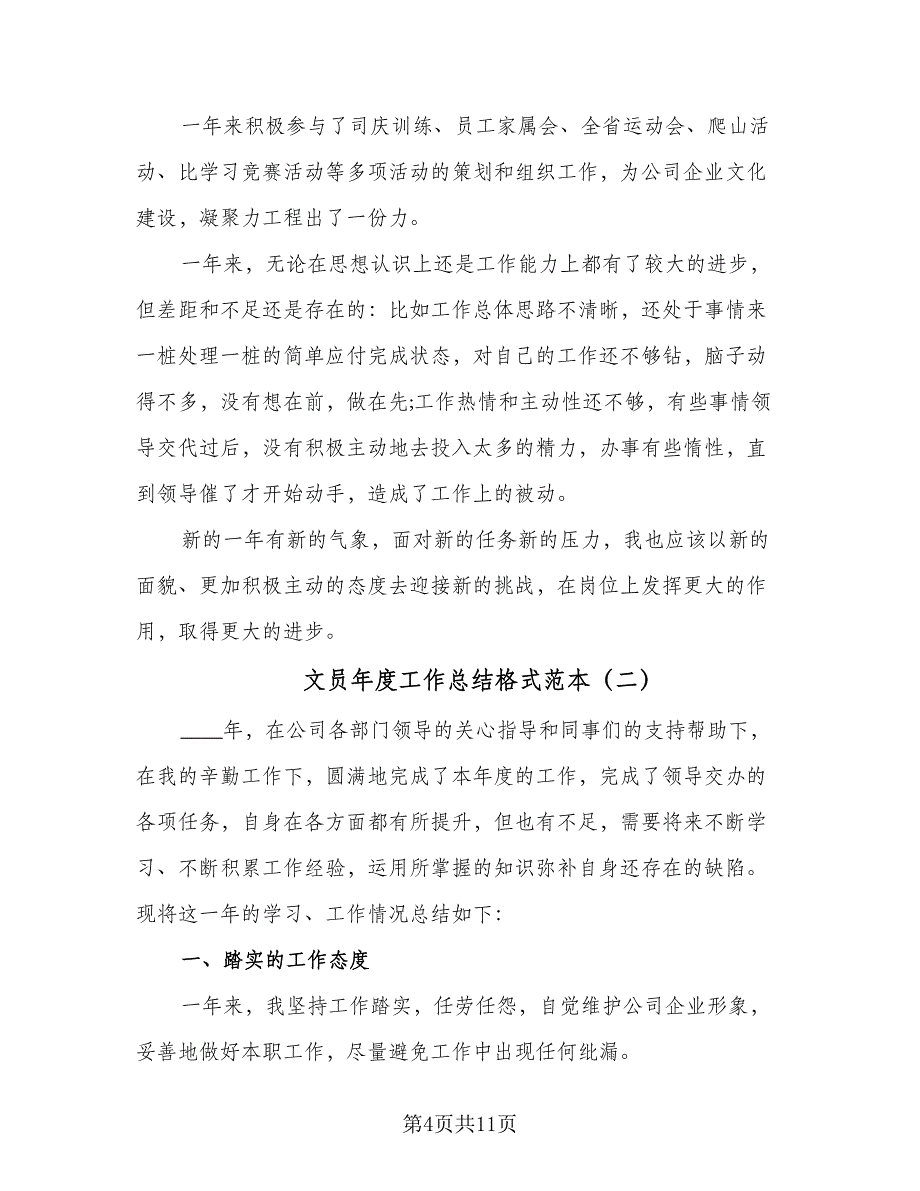 一年来积极参与了司庆训练、员工家属会、全省运动会、爬山活
动、比学习竞赛活动等多项活动的策划和组织工作，为公司企业文化
建设，凝聚力工程出了一份力。
一年来，无论在思想认识上还是工作能力上都有了较大的进步，
但差距和不足还是存在的：比如工作总体思路不清晰，还处于事情来
一桩处理一桩的简单应付完成状态，对自己的工作还不够钻，脑子动
得不多，没有想在前，做在先;工作热情和主动性还不够，有些事情领
导交代过后，没有积极主动地去投入太多的精力，办事有些惰性，直
到领导催了才开始动手，造成了工作上的被动。
新的一年有新的气象，面对新的任务新的压力，我也应该以新的
面貌、更加积极主动的态度去迎接新的挑战，在岗位上发挥更大的作
用，取得更大的进步。
文员年度工作总结格式范本（二）
____年，在公司各部门领导的关心指导和同事们的支持帮助下，
在我的辛勤工作下，圆满地完成了本年度的工作，完成了领导交办的
各项任务，自身在各方面都有所提升，但也有不足，需要将来不断学
习、不断积累工作经验，运用所掌握的知识弥补自身还存在的缺陷。
现将这一年的学习、工作情况总结如下：
一、踏实的工作态度
一年来，我坚持工作踏实，任劳任怨，自觉维护公司企业形象，
妥善地做好本职工作，尽量避免工作中出现任何纰漏。
第4页共11页